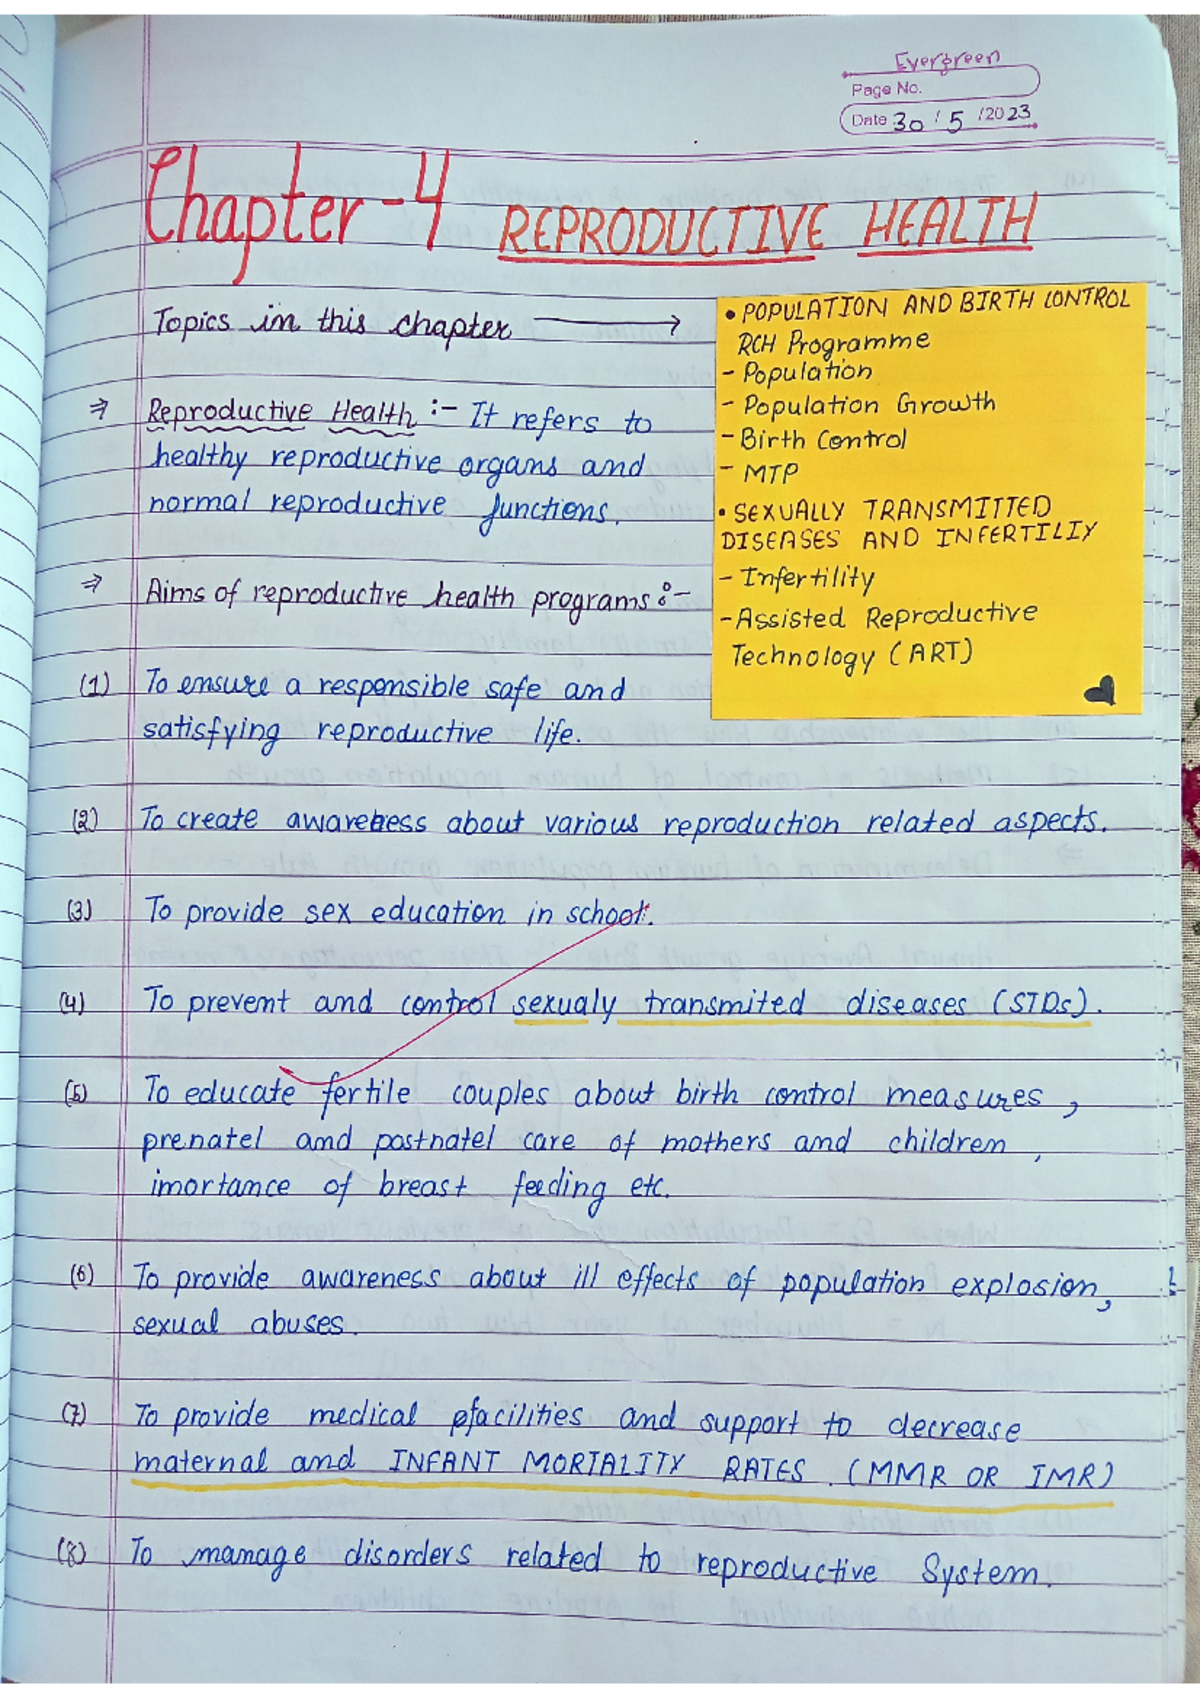 Evergreen
Page No.
Date 30 / 5 /2023
Chapter-4 REPRODUCTIVE HEALTH
Topics in this chapter →
• POPULATION AND BIRTH CONTROL
RCH Programme
- Population
- Population Growth
- Birth Control
- MTP
• SEXUALLY TRANSMITTED
DISEASES AND INFERTILIY
- Infertility
- Assisted Reproductive
Technology (ART)
⇒ Reproductive Health :- It refers to
healthy reproductive organs and
normal reproductive functions.
⇒ Aims of reproductive health programs :-
(1) To ensure a responsible safe and
satisfying reproductive life.
(2) To create awareness about various reproduction related aspects.
(3) To provide sex education in school.
(4) To prevent and control sexualy transmited diseases (STDs).
(5) To educate fertile couples about birth control measures,
prenatel and postnatel care of mothers and children,
imortance of breast feeding etc.
(6) To provide awareness about ill effects of population explosion,
sexual abuses.
(7) To provide medical facilities and support to decrease
maternal and INFANT MORTALITY RATES. (MMR OR IMR)
(8) To manage disorders related to reproductive System.